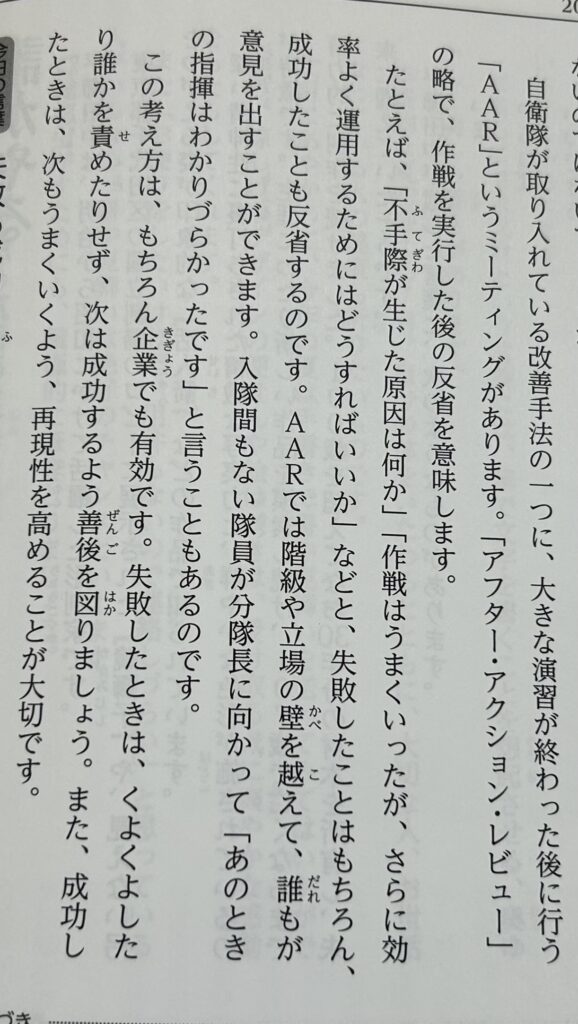 自衛隊が取り入れている改善手法の一つに、大きな演習が終わった後に行う
「AAR」というミーティングがあります。「アフター・アクション・レビュー」
の略で、作戦を実行した後の反省を意味します。
たとえば、「不手際が生じた原因は何か」「作戦はうまくいったが、さらに効
率よく運用するためにはどうすればいいか」などと、失敗したことはもちろん、
成功したことも反省するのです。AARでは階級や立場の壁を越えて、誰もが
意見を出すことができます。入隊間もない隊員が分隊長に向かって「あのとき
の指揮はわかりづらかったです」と言うこともあるのです。
この考え方は、もちろん企業でも有効です。失敗したときは、くよくよした
り誰かを責めたりせず、次は成功するよう善後を図りましょう。また、成功し
たときは、次もうまくいくよう、再現性を高めることが大切です。
今日の言葉
づき